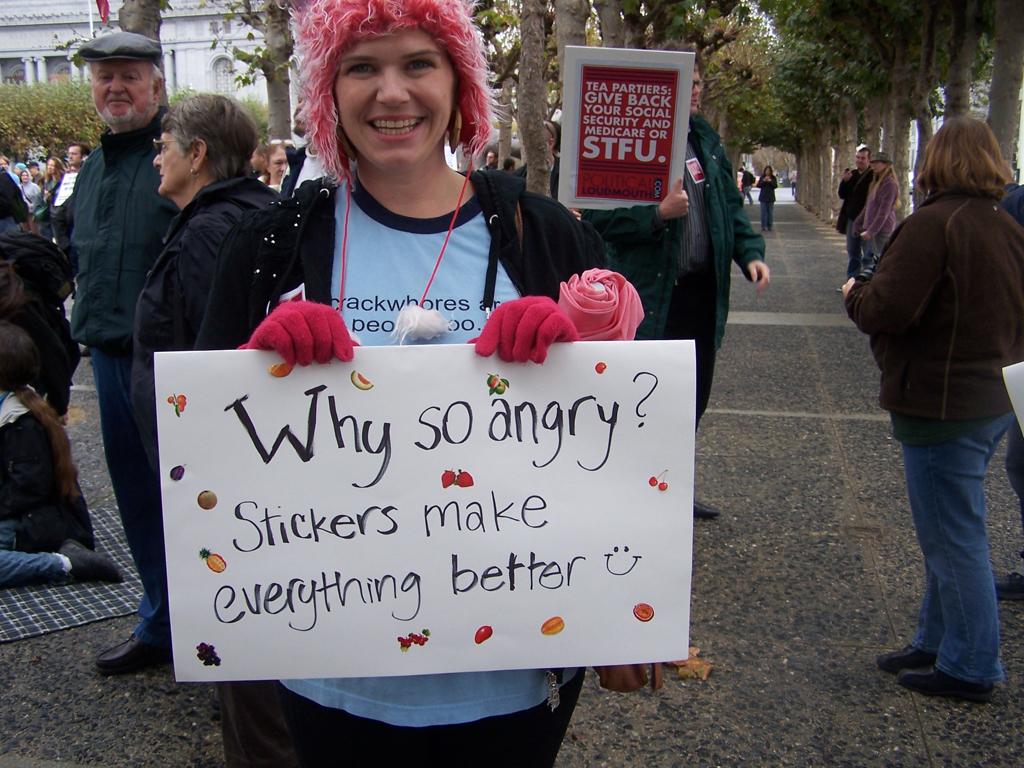 TEA PARTIERS:
GIVE BACK
YOUR SOCIAL
SECURITY AND
MEDICARE OR
STFU.
POLITICAL
LOUDMOUTH
crackwhores
Why so angry?
Stickers make
everything better